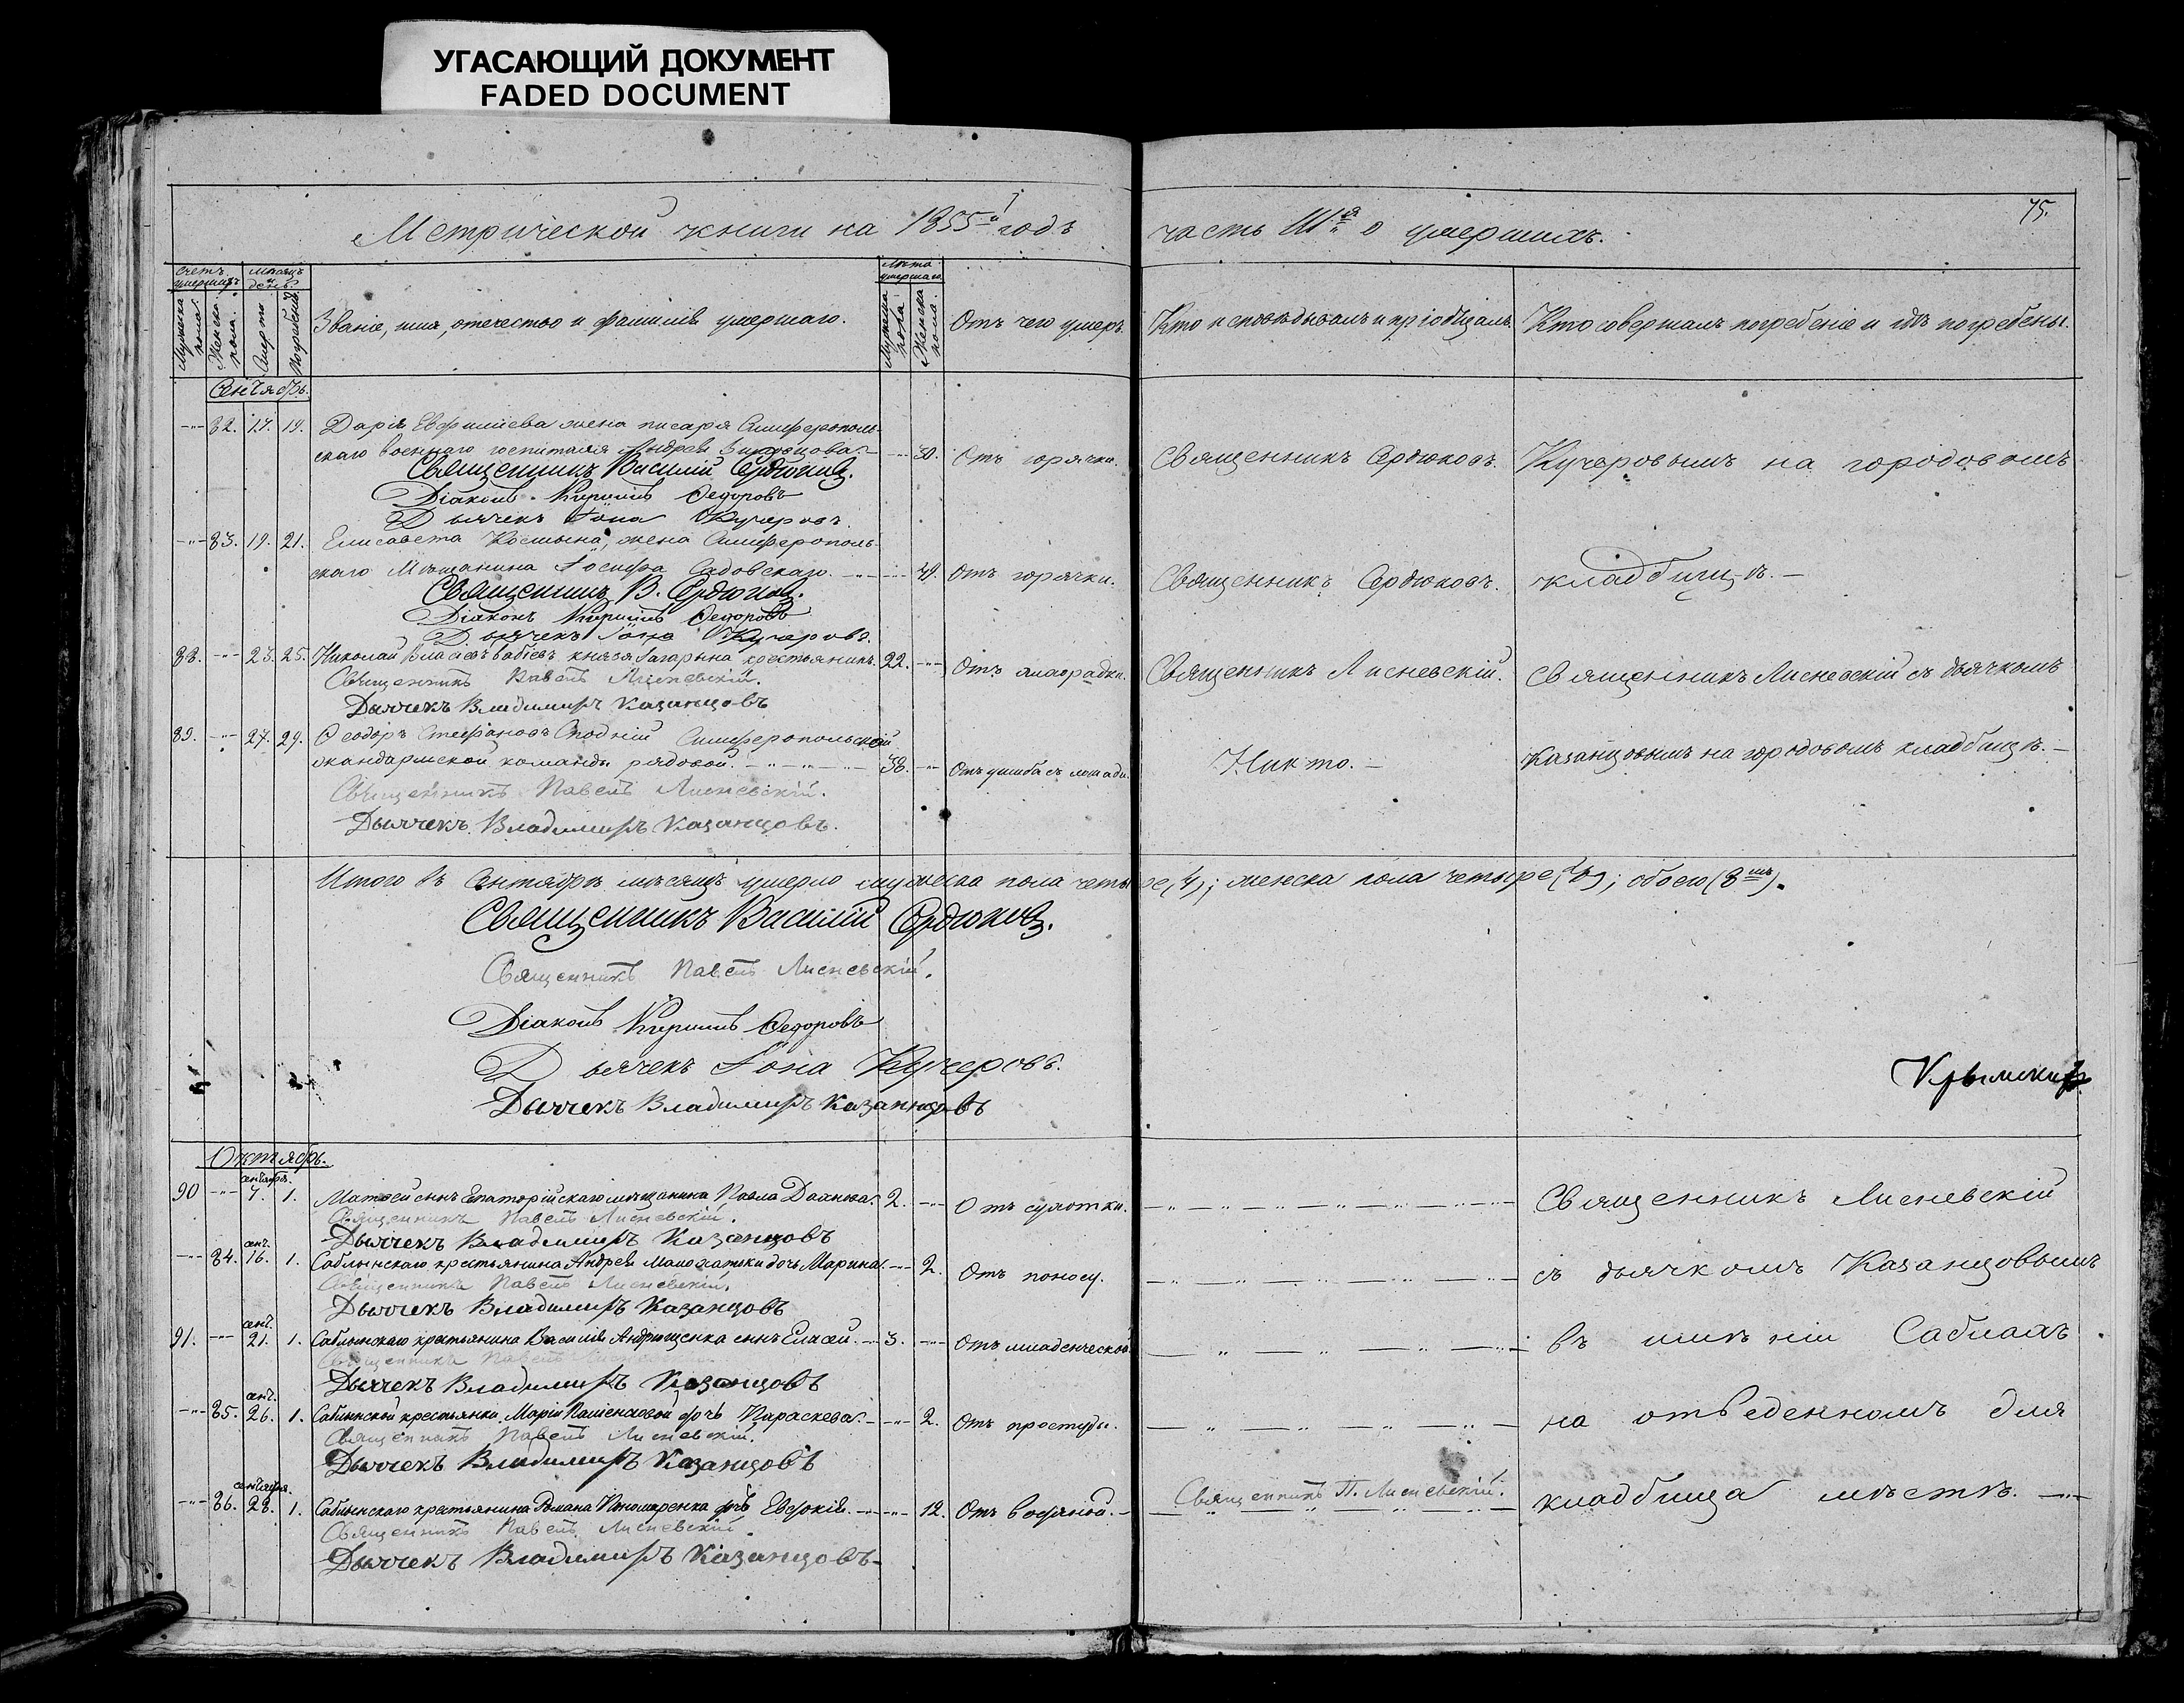 УГАСАЮЩИЙ ДОКУМЕНТ
FADED DOCUMENT
75.
Метрической книги на 1855й годъ часть IIIя о умершихъ.
Счетъ умершихъ
Мужеска пола.
Женска пола.
Мѣсяцъ и день.
Смерти
Погребенія.
Званіе, имя, отечество и фамилія умершаго.
Лѣта умершаго.
Мужеска пола
Женска пола.
Отъ чего умеръ.
Кто исповѣдывалъ и пріобщалъ.
Кто совершалъ погребеніе и гдѣ погребены.
Сентябрь.
82. 17. 19. Дарія Евфиміева жена писаря Симферополь-
скаго военнаго госпиталя Андрея 30. Отъ горячки. Священникъ Сердюковъ. Кучеровымъ на городовомъ
Священникъ Василій Сердюковъ.
Діаконъ Кириллъ Федоровъ
Дьячекъ Іона Кучеровъ.
83. 19. 21. Елисавета Космына, жена Симферополь-
скаго Мѣщанина Іосифа Садовскаго. 49. Отъ горячки. Священникъ Сердюковъ. кладбищѣ.
Священникъ В. Сердюковъ.
Діаконъ Кириллъ Федоровъ
Дьячекъ Іона Кучеровъ.
88. 23. 25. Николай Власіевъ князя Гагарына крестьянинъ. 22. Отъ лихорадки. Священникъ Лисневскій. Священникъ Лисневскій съ дьячкомъ
Священникъ Павелъ Лисневскій.
Дьячекъ Владимиръ Казанцовъ
89. 27. 29. Феодоръ Стефановъ Симферопольской
жандармской команды рядовой. 38. Отъ ушиба съ лошади. Никто. Казанцовымъ на городовомъ кладбищѣ.
Священникъ Павелъ Лисневскій.
Дьячекъ Владимиръ Казанцовъ.
Итого въ Сентябрѣ мѣсяцѣ умерло мужеска пола четыре (4); женска пола четыре (4); обоего (8мь).
Священникъ Василій Сердюковъ.
Священникъ Павелъ Лисневскій.
Діаконъ Кириллъ Федоровъ
Дьячекъ Іона Кучеровъ.
Крымскій
Дьячекъ Владимиръ Казанцовъ
Октябрь.
сентября.
90 7. 1. Матвей сынъ Евпаторійскаго мѣщанина Павла 2. Отъ сухотки. Священникъ Лисневскій
Священникъ Павелъ Лисневскій.
Дьячекъ Владимиръ Казанцовъ
сен.
84. 16. 1. Саблынскаго крестьянина Андрея дочь Марина. 2. Отъ поносу. съ дьячкомъ Казанцовымъ
Священникъ Павелъ Лисневскій.
Дьячекъ Владимиръ Казанцовъ
сен.
91. 21. 1. Саблынскаго крестьянина Василія Андрющенка сынъ Елисей. 3. Отъ младенческой. въ имѣніи Саблахъ
Священникъ Павелъ Лисневскій
Дьячекъ Владимиръ Казанцовъ
сен.
85. 26. 1. Саблынской крестьянки Маріи дочь Параскева. 2. Отъ простуды. на отведенномъ для
Священникъ Павелъ Лисневскій.
Дьячекъ Владимиръ Казанцовъ
сентября.
86. 28. 1. Саблынскаго крестьянина Романа Пономаренка дочь Евдокія. 12. Отъ водяной. Священникъ П. Лисневскій. кладбища мѣстѣ.
Священникъ Павелъ Лисневскій.
Дьячекъ Владимиръ Казанцовъ